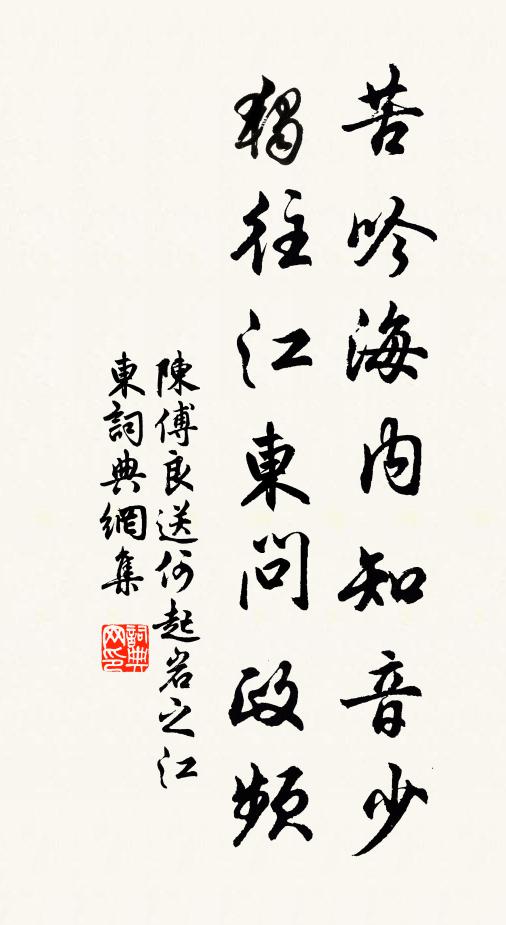 苦吟海内知音少
獨往江東問政頻
陳傅良送何起岩之江
東詞典網集
詞典
网印